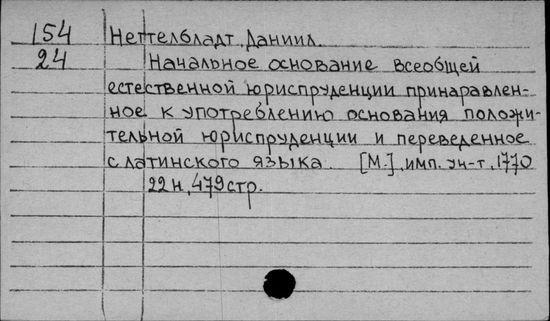 154 Неттелбладт, Даниил.
24 Начальное основание всеобщей
естественной юриспруденции принаравлен-
ное к употреблению основания положи-
тельной юриспруденции и переведенное
с латинского языка. [М.], имп. ун-т, 1770
22 н, 479 стр.